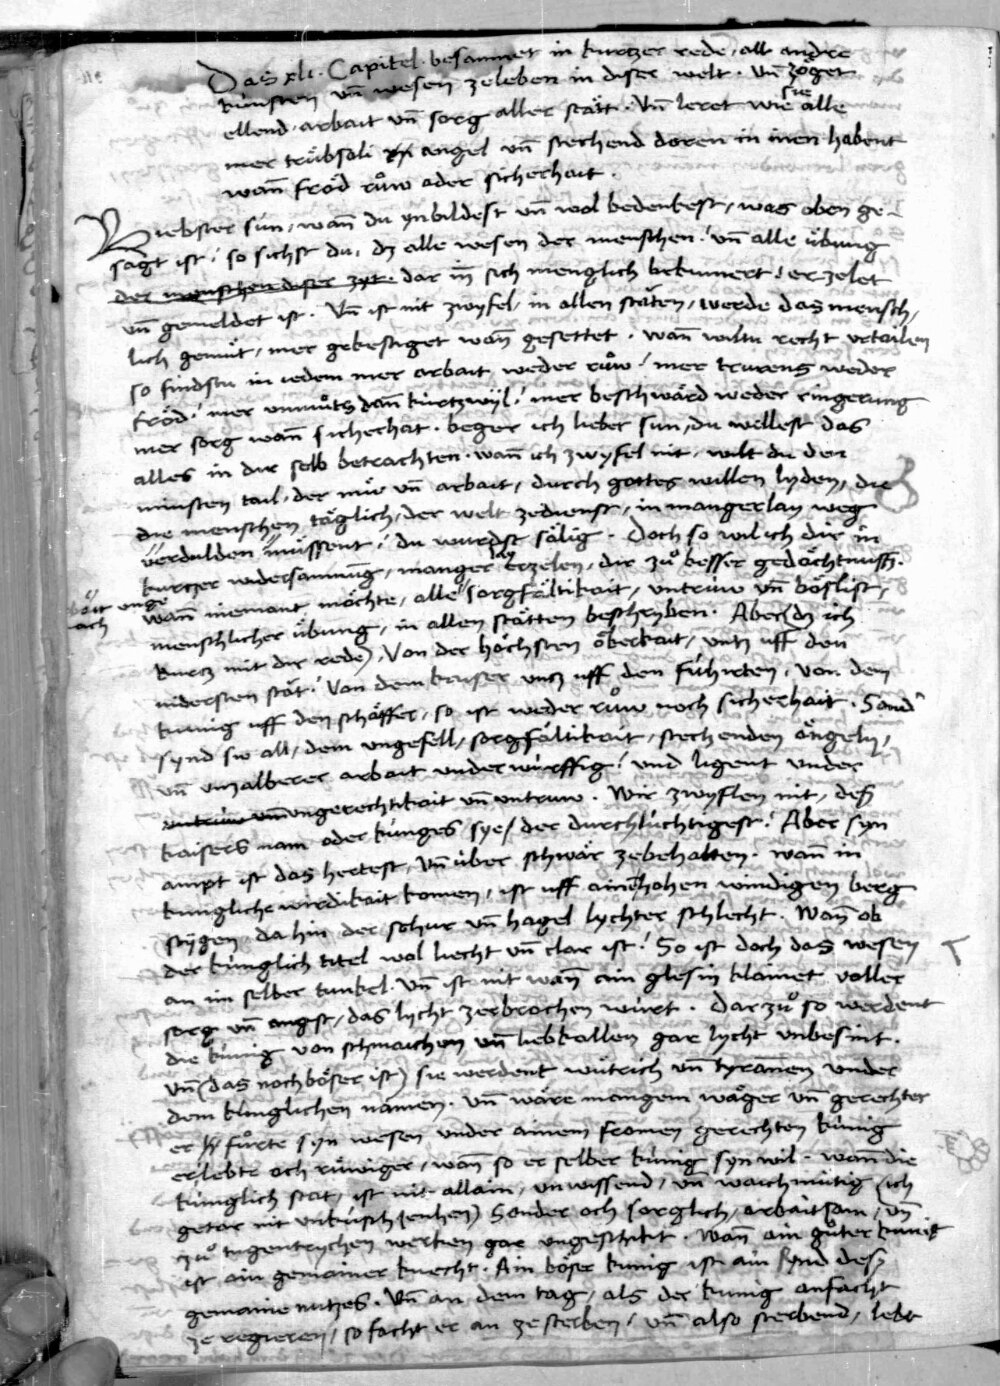 Das xli. Capitel. besammet in kurtzer rede, all andre
künsten vn̄ wesen zeleben in diser welt. Vn̄ zöget
ellend, arbait vn̄ sorg aller stätt. Vn̄ leret wie sie alle
mer trübsäli angel vn̄ stechend doren in inen habent
wan̄ fröd růw oder sicherhait.
Liebster sun, wan̄ du ynbildest vn̄ wol bedenkest, was oben ge-
sagt ist, so sichst du, dz alle wesen der menschen, vn̄ alle übung
der menschen diser zyt. dar in̄ sich menglich bekumert, erzelet
vn̄ gemeldet ist. Vn̄ ist nit zwyfel, in allen stäten, werde das mensch,
lich gemüt, mer gekestiget wan̄ gesettet. wan̄ wiltu recht vrtailen
so findstu in iedem mer arbait weder růw, mer trurens weder
fröd, mer vnmůts dan̄ kurtzwyl, mer beschwärd weder ringerung
mer sorg wan̄ sicherhat. beger ich lieber sun, du wellest das
alles in dir selb betrachten. wan̄ ich zwyfel nit, wilt du den
minsten tail, der müw vn̄ arbait, durch gottes willen lyden, die
die menschen täglich, der welt zedienst, in mangerlay weg
verdulden müssent, du wurdst sälig. Doch so wil ich dir in
kurtzer widersammūg, manger lay erzelen, dir zů besser gedächtnuss.
wan̄ niemant möchte, alle sorgfältikait, vntrüw vn̄ böslist,
menschlicher übung, in allen stätten beschryben. Aber (dz ich
kurtz mit dir rede) Von der höchsten oberkait, vntz uff den
nidersten stät, Von dem kaiser vntz uff den fuhrten, von dem
kunig uff den schäffer, so ist weder růw noch sicherhait. Sond'
synd sie all, dem vngefell, sorgfältikait, stechenden ängeln,
vn̄ vnzalberer arbait vnderwürffig, vnd ligent vnder
vntrüw vn̄ vngerechtikait vn̄ vntruw. Wir zwyflen nit, des
kaisers nam oder kunges sye der durchlüchtigest, Aber syn
ampt ist das hertest, Vn̄ über schwär zebehalten. wan̄ in
kungliche wirdikait komen, ist uff aine hohen windigen berg
stygen, da hin der schur vn̄ hagel lychter schlecht. Wan̄ ob
der künglich titel wol liecht vn̄ clar ist, So ist doch das wesen
an im selber tunkel. Vn̄ ist nit wan̄ ain glesin klainet voller
sorg vn̄ angst, das lycht zerbrochen würt. Darzů so werdent
die künig von schmaichen vn̄ liebkallen gar lycht vnbesint.
Vn̄ (das noch böser ist) sie werdent wütrich vn̄ tyrannen vnder
dem künglichen namen. vn̄ wäre mangem wäger vn̄ gerechter
er fůrte syn wesen vnder ainem fromen gerechten künig
er lebte och rüwiger, wan̄ so er selber künig syn wil. wan̄ die
künglich stat, ist nit allain, vnwissend, vn̄ waichmütig (ich
getar nit vnküsch ienhen) Sonder och sorglich, arbaitsam, vn̄
zů tugentrychen werken gar vngeschikt. Wan̄ ain gůter kunig
ist ain gemainer knecht. Ain böser kunig ist ain fynd des
gemaine nutzes. Vn̄ an dem tag, als der kunig anfacht
ze regieren, so facht er an ze sterben, vn̄ also sterbend, lebt